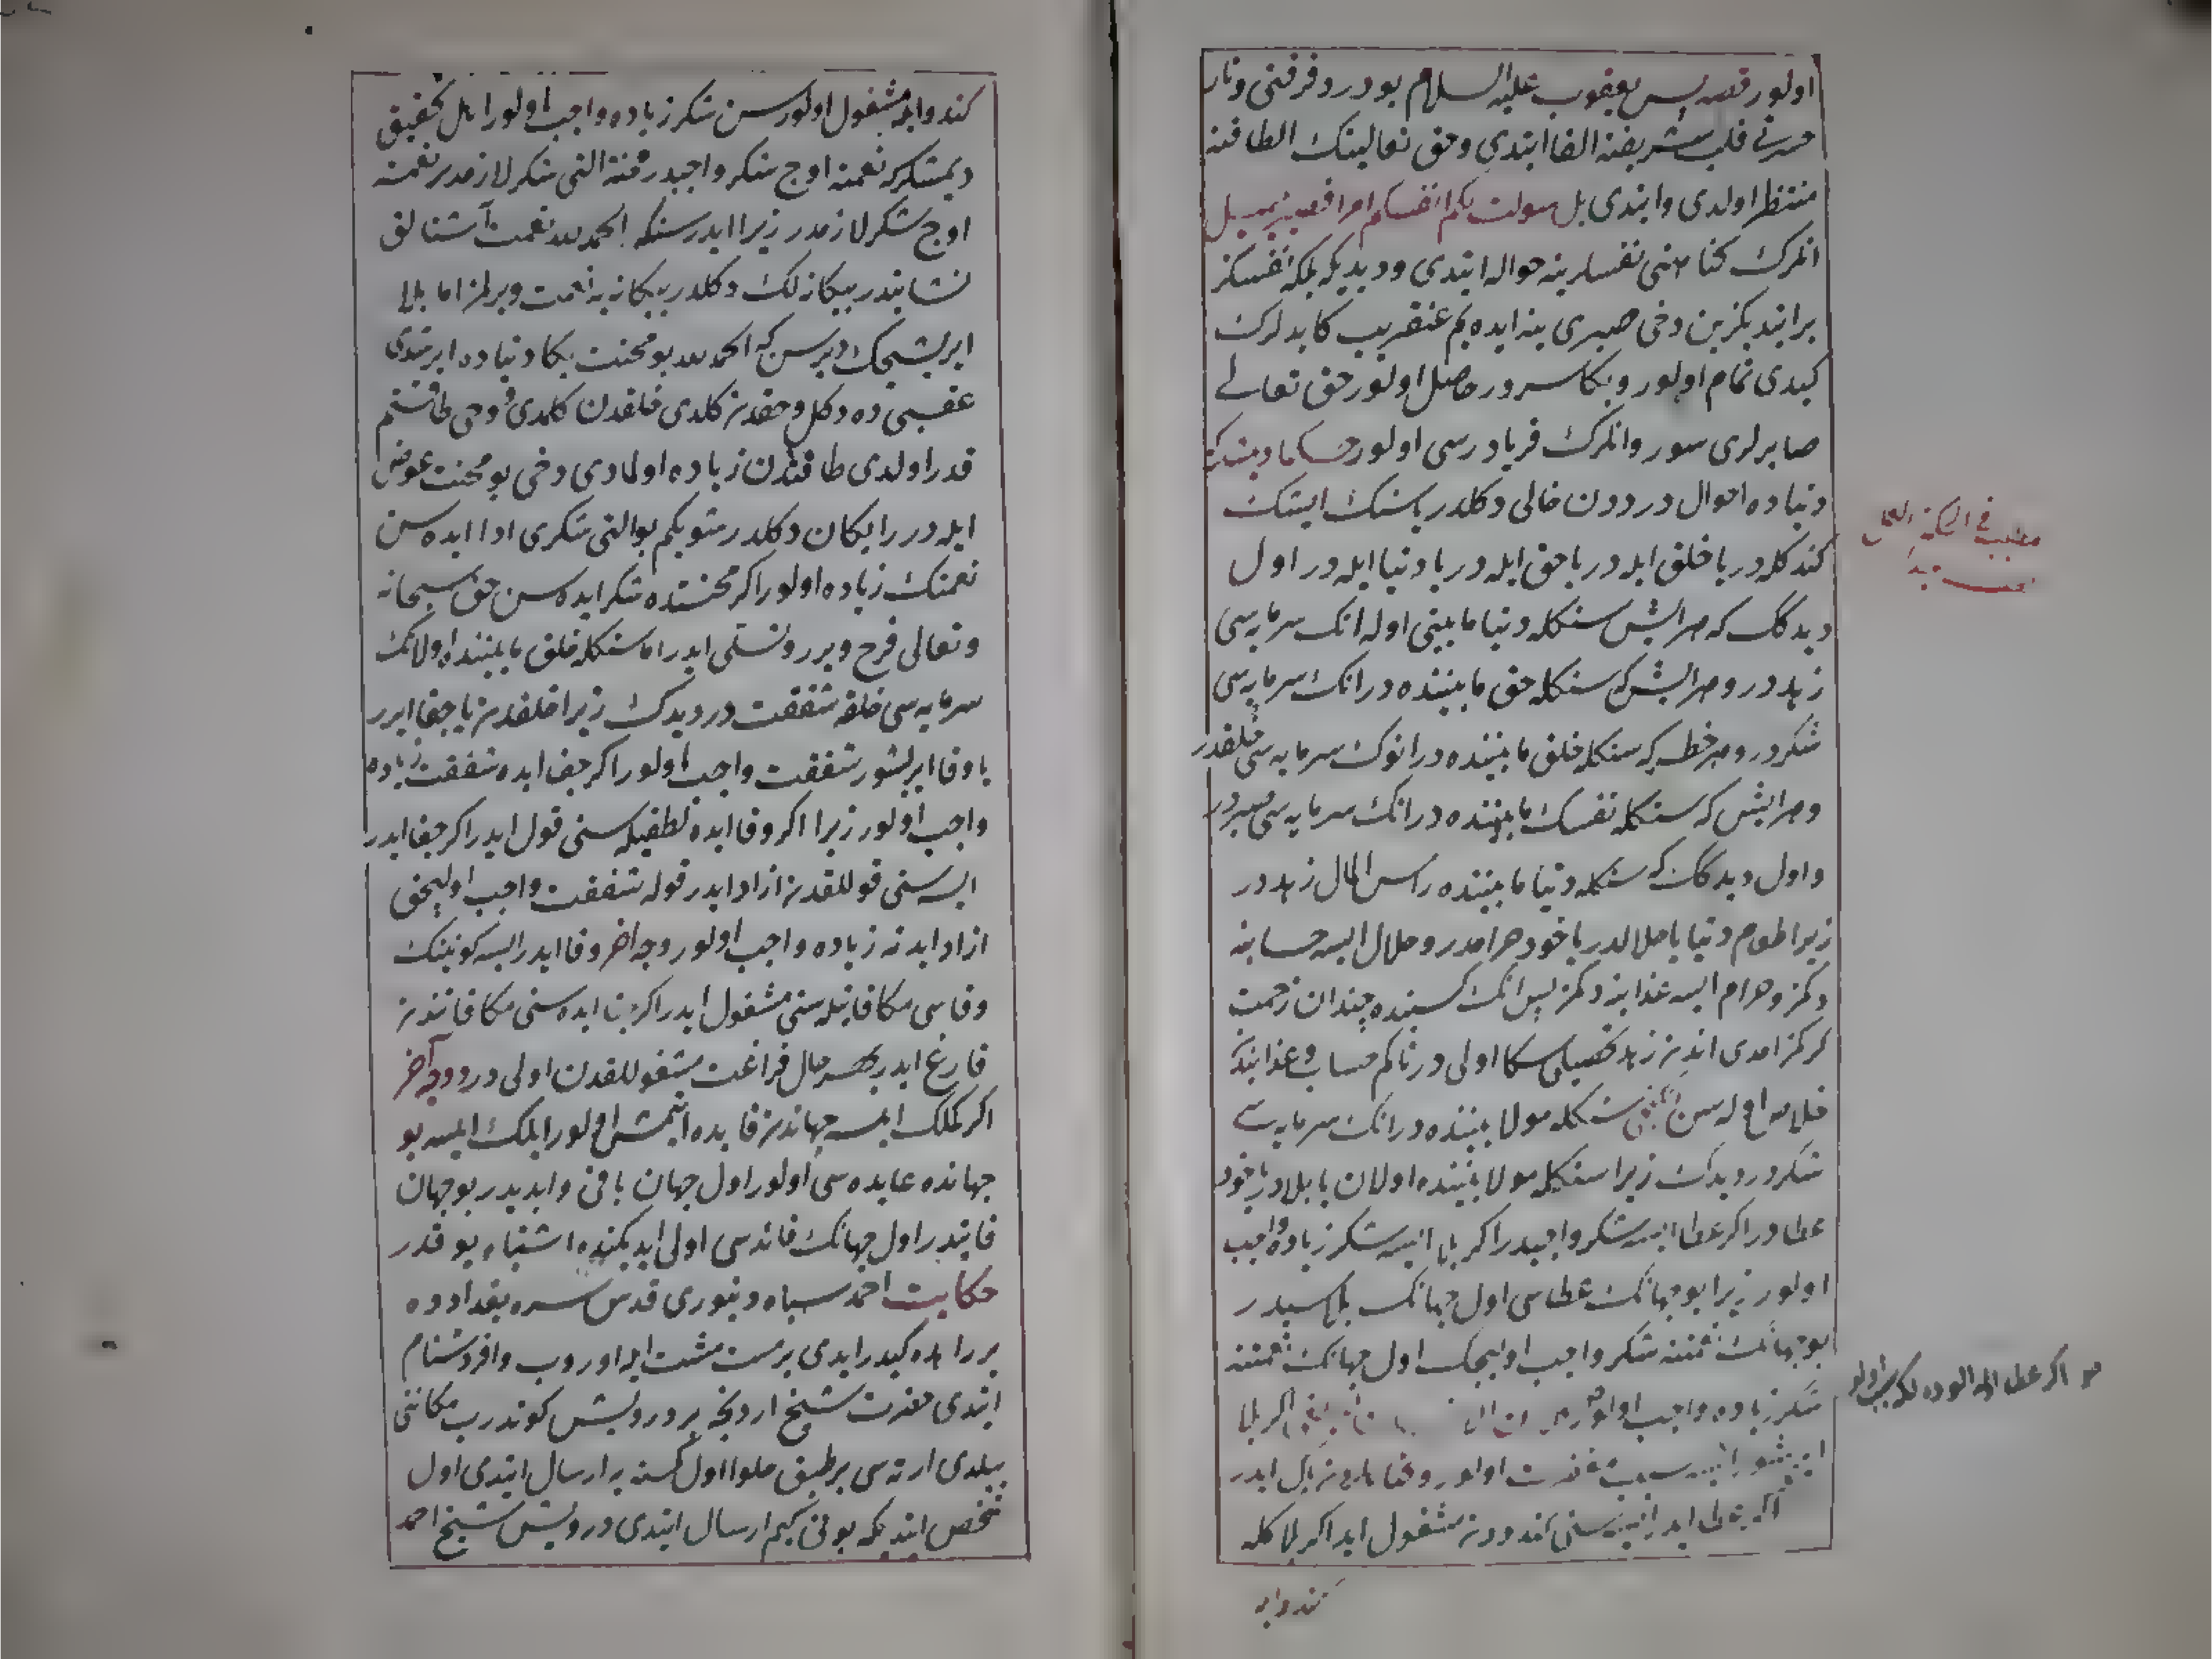 اولور قصه پس یعقوب علیه السلام بو درد فرقتی و نار
حسرتی قلب شریفنه القا ایتدی و حق تعالینك الطافنه
منتظر اولدی و ایتدی بل سولت لكم انفسكم امرا فصبر جمیل
انلرك كناهنی نفسلرینه حواله ایتدی و دیدیكه بلكه نفسكز
بر ایتدیكزین دخی صبری پیشه ایده یم عنقریب كابدلرك
كیدی تمام اولور و بكا سرور حاصل اولور حق تعالی
صابرلری سور و انلرك فریاد رسی اولور حكما دیمشلر
دنیاده احوال درددن خالی دكلدر یا سنك ایشك
كندكله در یا خلق ایله در یا حق ایله در یا دنیا ایله در اول
دیدكك كه هر ایش سنكله دنیا مابینی اوله انك سرمایه سی
زهد در و هر ایش كه سنكله حق مابیننده در انك سرمایه سی
شكر در و هر خطر كه سنكله خلق مابیننده در انوك سرمایه سی خلقدر
و هر ایش كه سنكله نفسك مابیننده در انك سرمایه سی صبر در
و اول دیدكك كه سنكله دنیا مابیننده راس المال زهد در
زیرا طعام دنیا یا حلالدر یا خود حرامدر و حلال ایسه حسابنه
دكمز و حرام ایسه عذابنه دكمز پس انك كسبنده چندان زحمت
كركمز امدی اندن زهد تحصیلی سكا اولی در تاكم حساب و عذابدن
خلاص اوله سن سنكله مولا بیننده در انك سرمایه سی
شكر در دیدك زیرا سنكله مولا بیننده اولان یا بلا در یا خود
عطا در اكر عطا ایسه شكر واجبدر اكر بلا ایسه شكر زیاده واجب
اولور زیرا بو جهانك عطاسی اول جهانك بلاسیدر
بو جهانك نعمتنه شكر واجب اولیجك اول جهانك نعمتنه
شكر زیاده واجب اولور اكر بلا
ایریشور ایسه سبب مغفرت اولور
اكر عطا ایدر ایسه سنی كندودن مشغول ایدر اكر بلا كله
كندوایه
كندوایله مشغول اولورسن شكر زیاده واجب اولور اهل تحقیق
دیمشلركه نعمته اوج شكر واجبدر محنته التی شكر لازمدر نعمته
اوج شكر لازمدر زیرا ایدرسنكه الحمد لله نعمت آشنالق
نشانیدر بیكانه لك دكلدر بیكانه یه نعمت ویرلمز اما بلا
ایریشیجك دیرسن كه الحمد لله بو محنت بكا دنیاده ایرشدی
عقبی ده دكل و حقدن كلدی خلقدن كلمدی و دخی طاقتم
قدر اولدی طاقتدن زیاده اولمادی و دخی بو محنت عوض
ایله در رایكان دكلدر شویكم بو التی شكری ادا ایده سن
نعمتك زیاده اولور اكر محنتده شكر ایده سن حق سبحانه
و تعالی فرح ویرر و تسلی ایدر اما سنكله خلق مابیننده اولانك
سرمایه سی خلقه شفقت در دیدك زیرا خلقدن یا جفا ایرر
یا وفا ایریشور شفقت واجب اولور اكر جفا ایده شفقت زیاده
واجب اولور زیرا اكر وفا ایده لطفیله سنی قول ایدر اكر جفا ایدر
ایسه سنی قوللقدن ازاد ایدر قوله شفقت واجب اولیجق
ازاد ایدنه زیاده واجب اولور وجه اخر وفا ایدر ایسه كونینك
وفاسی مكافاتیله سنی مشغول ایدر اكر جفا ایده سنی مكافاتندن
فارغ ایدر بهر حال فراغت مشغوللقدن اولی در و وجه آخر
اكر كملك ایسه جهاندن فایده ایتمش اولور ایلك ایسه بو
جهانده عایده سی اولور اول جهان باقی و ابدیدر بو جهان
فانیدر اول جهانك فائده سی اولی ایدیكنده اشتباه یوقدر
حكایت احمد سیاه دینوری قدس سره بغدادده
بر راهده كیدر ایدی بر مست مشت ایله اوروب وافر دشنام
ایتدی حضرت شیخ اردنجه بر درویش كوندرب مكاننی
بیلدی ارته سی بر طبق حلوا اول كسنه یه ارسال ایتدی اول
شخص ایتدیكه بونی كیم ارسال ایتدی درویش شیخ احمد